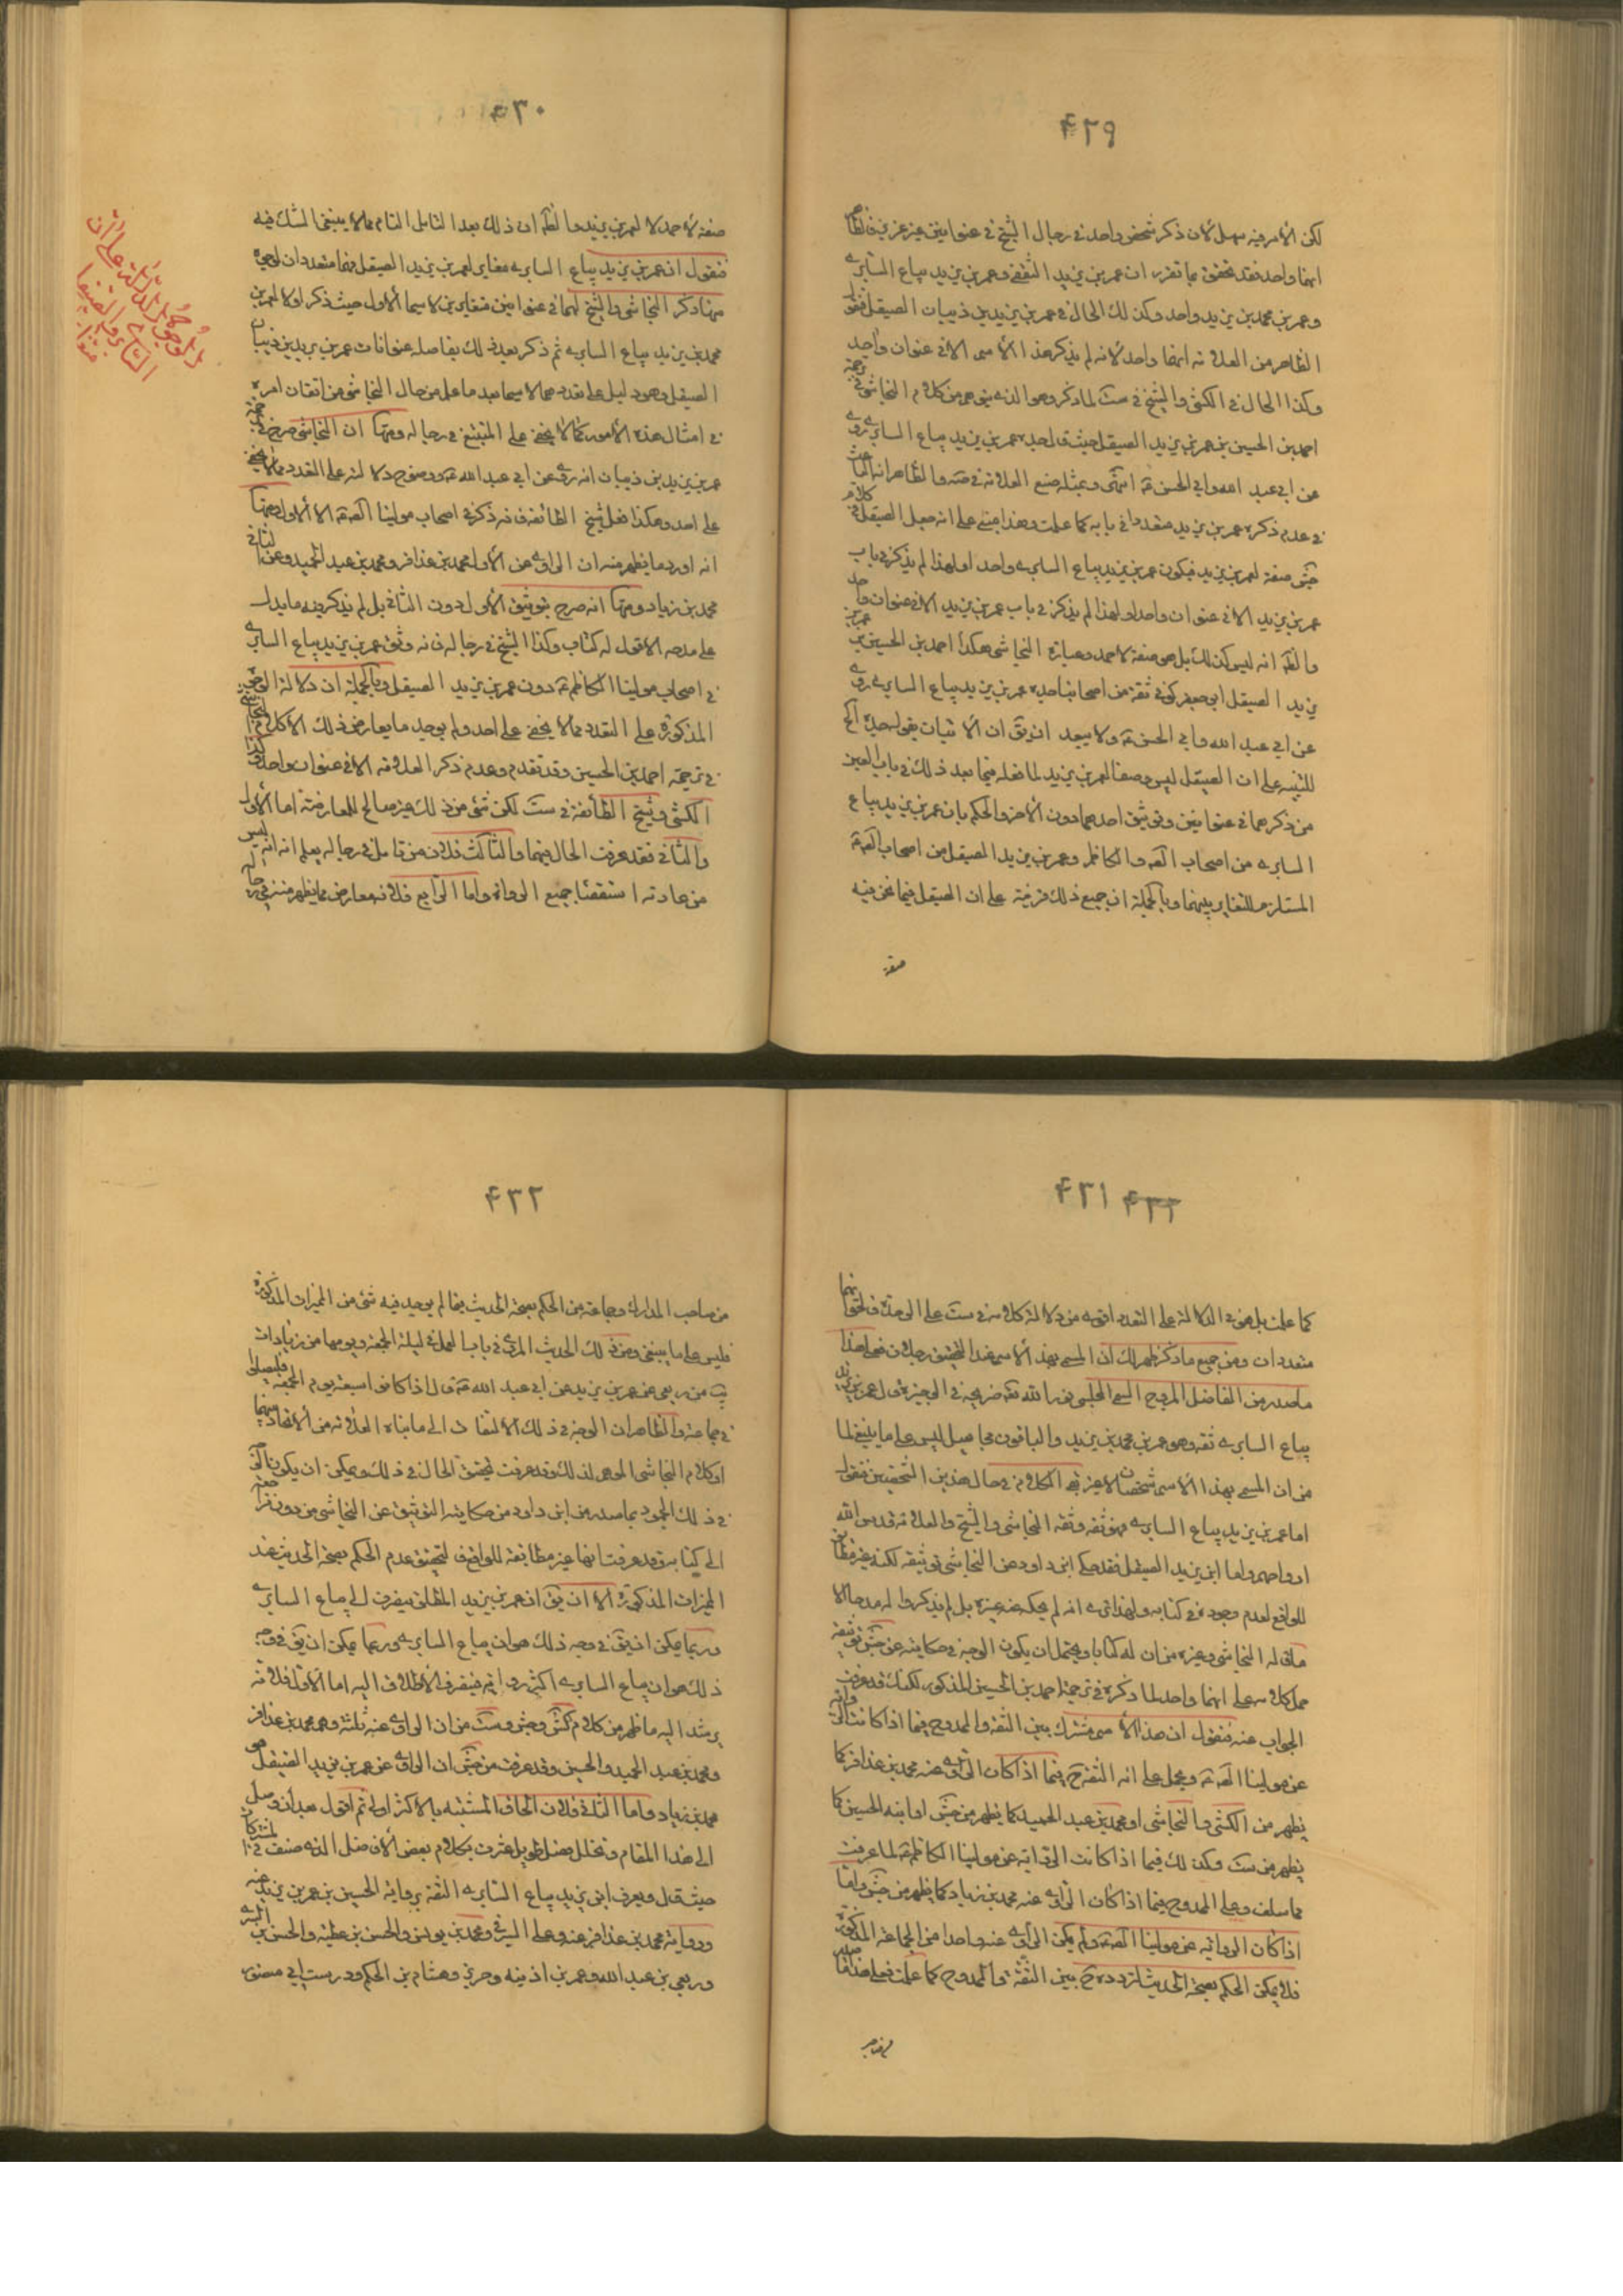 ۴۲۹
لكن الأمر فيه سهل لأن ذكر شخص واحد في رجال الشيخ في عنوانين غير عزيز فالظاهر
انهما واحد فقد تحقق بما تقرر ان عمر بن يزيد الثقفي وعمر بن يزيد بياع السابري
وعمر بن محمد بن يزيد واحد وكذلك الحال في عمر بن يزيد بن ذبيان الصيقل فنقول
الظاهر من العلامة انهما واحد لانه لم يذكر هذا الأسم الا في عنوان واحد
وكذا الحال في الكشي والشيخ في ست لما ذكر وهو الذي ينبئ عن كلام النجاشي في ترجمة
احمد بن الحسين بن عمر بن يزيد الصيقل حيث قال جده عمر بن يزيد بياع السابري روى
عن ابي عبد الله وابي الحسن ع انتهى وبمثله صنع العلامة في صه والظاهر انه الباعث
في عدم ذكره عمر بن يزيد متعددا في بابه كما علمت وهذا مبني على انه جعل الصيقل في كلام
جش صفة لعمر بن يزيد فيكون عمر بن يزيد بياع السابري واحد اولهذا لم يذكر في باب
عمر بن يزيد الا في عنوان واحد اولهذا لم يذكر في باب عمر بن يزيد الا في عنوان واحد
والظ انه ليس كذلك بل هو صفة لاحمد وعبارة النجاشي هكذا احمد بن الحسين بن عمر بن
يزيد الصيقل ابو جعفر كوفي ثقة من اصحابنا جده عمر بن يزيد بياع السابري روى
عن ابي عبد الله وابي الحسن ع ولا يبعد ان يق ان الاتيان بقوله جده الخ
للتنبيه على ان الصيقل ليس وصفا لعمر بن يزيد لما فعله فيما بعد ذلك في باب العين
من ذكرهما في عنوانين وتوثيق احدهما دون الأخر والحكم بان عمر بن يزيد بياع
السابري من اصحاب الص والكاظم وعمر بن يزيد الصيقل من اصحاب الص ع
المستلزم للتغاير بينهما وبالجملة ان جميع ذلك قرينة على ان الصيقل فيما نحن فيه
صفة
۴۳۰
صفة لأحمد لا لعمر بن يزيد والظ ان ذلك بعد التامل التام مما لا ينبغي الشك فيه
فنقول ان عمر بن يزيد بياع السابري مغاير لعمر بن يزيد الصيقل فهما متعددان لوجوه
منها ذكر النجاشي والشيخ لهما في عنوانين متغايرين لا سيما الأول حيث ذكر اولا لعمر بن
محمد بن يزيد بياع السابري ثم ذكر بعد ذلك بفاصلة عنوانات عمر بن يزيد بن ذبيان
الصيقل وهو دليل على تعددهما لا سيما بعد ما علم من حال النجاشي من اتقان امره
في امثال هذه الأمور كما لا يخفى على المتتبع في رجاله ومنها ان النجاشي صرح في ترجمة
عمر بن يزيد بن ذبيان انه روى عن ابي عبد الله ع ووضوح دلالته على التعدد مما لا يخفى
على احد وهكذا فعل شيخ الطائفة فانه ذكره في اصحاب مولينا الص ع الا الأول ومنها
انه اورد ما يظهر منه ان الراوي عن الأول محمد بن عذافر ومحمد بن عبد الحميد وعن الثاني
محمد بن زياد ومنها انه صرح بتوثيق الأول دون الثاني بل لم يذكر فيه ما يدل
على مدحه الا قوله له كتاب وكذا الشيخ في رجاله فانه وثق عمر بن يزيد بياع السابري
في اصحاب مولينا الكاظم ع دون عمر بن يزيد الصيقل وبالجملة ان دلالة الوجوه
المذكورة على التعدد مما لا يخفى على احد ولم يوجد ما يعارض ذلك الا كلام النجاشي
في ترجمة احمد بن الحسين وقد تقدم وعدم ذكر العلامة الا في عنوان واحد وكذا
الكشي وشيخ الطائفة في ست لكن شئ من ذلك غير صالح للمعارضة اما الأول
والثاني فقد عرفت الحال فيهما والثالث فلان من تامل في رجاله يعلم انه ليس
من عادته استقصاء جميع الرواة واما الرابع فلانه معارض مما يظهر منه في رجاله
الوجوه الدالة على ان
السابري والصيقل
۴۳۱ ۴۳۲
كما علمت بل هو في الدلالة على التعدد اقوى من دلالة كلامه في ست على الوحدة فالحق انهما
متعددان ومن جميع ما ذكر ظهر لك ان المسمى بهذا الأسم هذا التحقيق رجلان فعلى هذا
ما صدر من الفاضل المروج السمي المجلسي نور الله ضريحه في الوجيزة قال عمر بن يزيد
بياع السابري ثقة وهو عمر بن محمد بن يزيد والباقون مجاهيل ليس على ما ينبغي لما
من ان المسمى بهذا الأسم شخصان لا غير بقي الكلام في حال هذين الشخصين فنقول
اما عمر بن يزيد بياع السابري فهو ثقة وثقه النجاشي والشيخ والعلامة قدس الله
ارواحهم واما ابن يزيد الصيقل فقد حكى ابن داود عن النجاشي توثيقه لكنه غير مطابق
للواقع لعدم وجوده في كتابه ولهذا ترى انه لم يحكه غيره بل لم يذكروا له مدحا الا
ما قاله النجاشي وغيره من ان له كتابا ويحتمل ان يكون الوجه في حكايته عن جش توثيقه
حمل كلامه على انهما واحد لما ذكره في ترجمة احمد بن الحسين المذكور لكنك قد عرفت
الجواب عنه فنقول ان هذا الأسم مشترك بين الثقة والممدوح فيما اذا كانت الرواية
عن مولينا الص ع ويحمل على انه الثقة ح فيما اذا كان الراوي عنه محمد بن عذافر كما
يظهر من الكشي والنجاشي او محمد بن عبد الحميد كما يظهر من جش او ابنه الحسين كما
يظهر من ست وكذلك فيما اذا كانت الرواية عن مولينا الكاظم ع لما عرفت
مما سلف وعلى الممدوح فيما اذا كان الراوي عنه محمد بن زياد كما يظهر من جش واما
اذا كان الرواية عن مولينا الص ع ولم يكن الراوي عنه واحدا من الجماعة المذكورة
فلا يمكن الحكم بصحة الحديث لتردده ح بين الثقة والممدوح كما علمت فعلى هذا فما صدر
۴۳۲
من صاحب المدارك وجماعة من الحكم بصحة الحديث فيما لم يوجد فيه شئ من المميزات المذكورة
فليس على ما ينبغي ومن ذلك الحديث المروي في باب العمل في ليلة الجمعة ويومها من زيادات
يب من ربعي عن عمر بن يزيد عن ابي عبد الله ع قال اذا كانوا سبعة يوم الجمعة فليصلوا
في جماعة والظاهر ان الوجه في ذلك الالتفات الى ما بناه العلامة من الاتحاد بينهما
او كلام النجاشي الموهم لذلك وقد عرفت تحقيق الحال في ذلك ويمكن ان يكون
في ذلك الجمود بما صدر من ابن داود من حكايته التوثيق عن النجاشي من دون
الى كتابه وقد عرفت انها غير مطابقة للواقع فالتحقيق عدم الحكم بصحة الحديث عند
المميزات المذكورة الا ان يق ان عمر بن يزيد المطلق ينصرف الى بياع السابري
وربما يمكن ان يق في وجه ذلك هو ان بياع السابري وربما يمكن ان يق في وجه
ذلك هو ان بياع السابري اكثر رواية فينصرف الأطلاق اليه اما الأول فلانه
يرشد اليه ما ظهر من كلام كش وجش وست من ان الراوي عنه ثلثة وهم محمد بن عذافر
ومحمد بن عبد الحميد والحسين وقد عرفت من جش ان الراوي عن عمر بن يزيد الصيقل هو
محمد بن زياد واما الثاني فلان الحاق المشتبه بالاكثر اولى ثم اقول بعد ان وصل
الى هذا المقام وتخلل فصل طويل عثرت بكلام بعض الأفاضل الذي صنف في المشتركات
حيث قال ويعرف ابن يزيد بياع السابري الثقة برواية الحسين بن عمر بن يزيد عنه
ورواية محمد بن عذافر عنه وعلى السيرفي ومحمد بن يونس والحسن بن عطية والحسن بن
وربعي بن عبد الله وعمر بن اذينه وحريز وهشام بن الحكم ودرست ابن ابي منصور